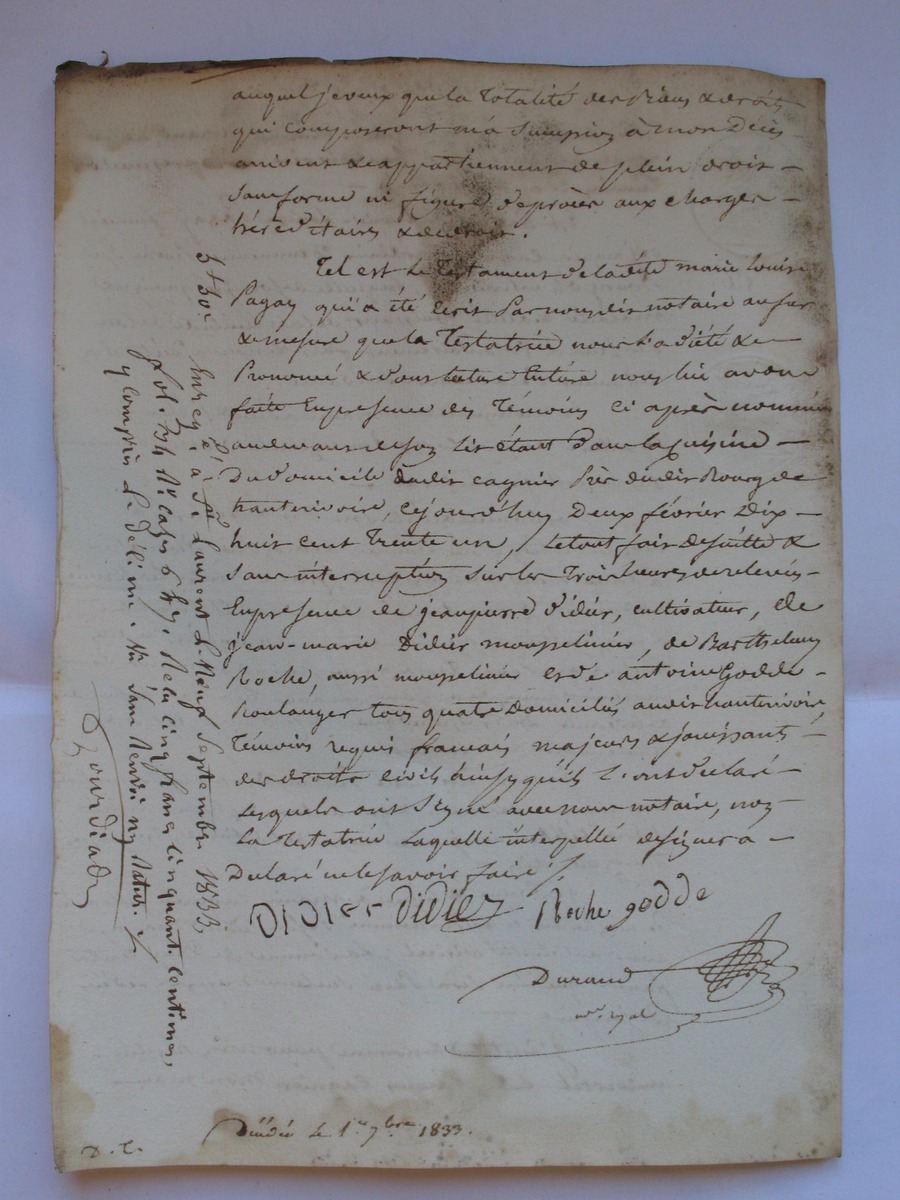 auquel je veux que la totalité des Biens & droits
qui composeront ma succession à mon Décès
arrivent & appartiennent de plein droit –
sans forme ni figure de procès aux charges –
héréditaires & de droit.
Tel est le Testament de ladite marie Louise
Pagay qui a été Ecrit Par nous dit notaire au fur
& mesure que la Testatrice nous l'a dicté &
Prononcé & dont lecture Entière nous lui avons
faite En presence des Témoins ci après nommés
au devant de son lit étant dans la cuisine –
Du domicile dudit cagnier Près dudit Bourg de
hauterivoire, cejourd'huy Deux février Dix –
huit cent Trente un, le tout fait de suitte &
sans interruption sur les Trois heures de relevée –
En presence de jean pierre didier, cultivateur, De
jean-marie Didier mousselinier, de Barthelemy
Roche, aussi mousselinier et de antoine Godde –
Boulanger tous quatre Domiciliés audit hauterivoire,
Témoins requis français majeurs & jouissants –
des droits civils Ainsy qu'ils l'ont déclaré –
Lesquels ont signé avec nous notaire, non –
La Testatrice Laquelle interpellée de signer a –
Déclaré ne le savoir faire ./.
DIDIEE didier Roche godde
Durand
nre. royal
5 f 50 c
Enregé à St Laurent le Neuf Septembre 1833,
fol. 74 Ro cases 6 & 7. Reçu cinq francs cinquante centimes,
y compris le décime.
Décédée le 1er 7bre 1833.
D. T.